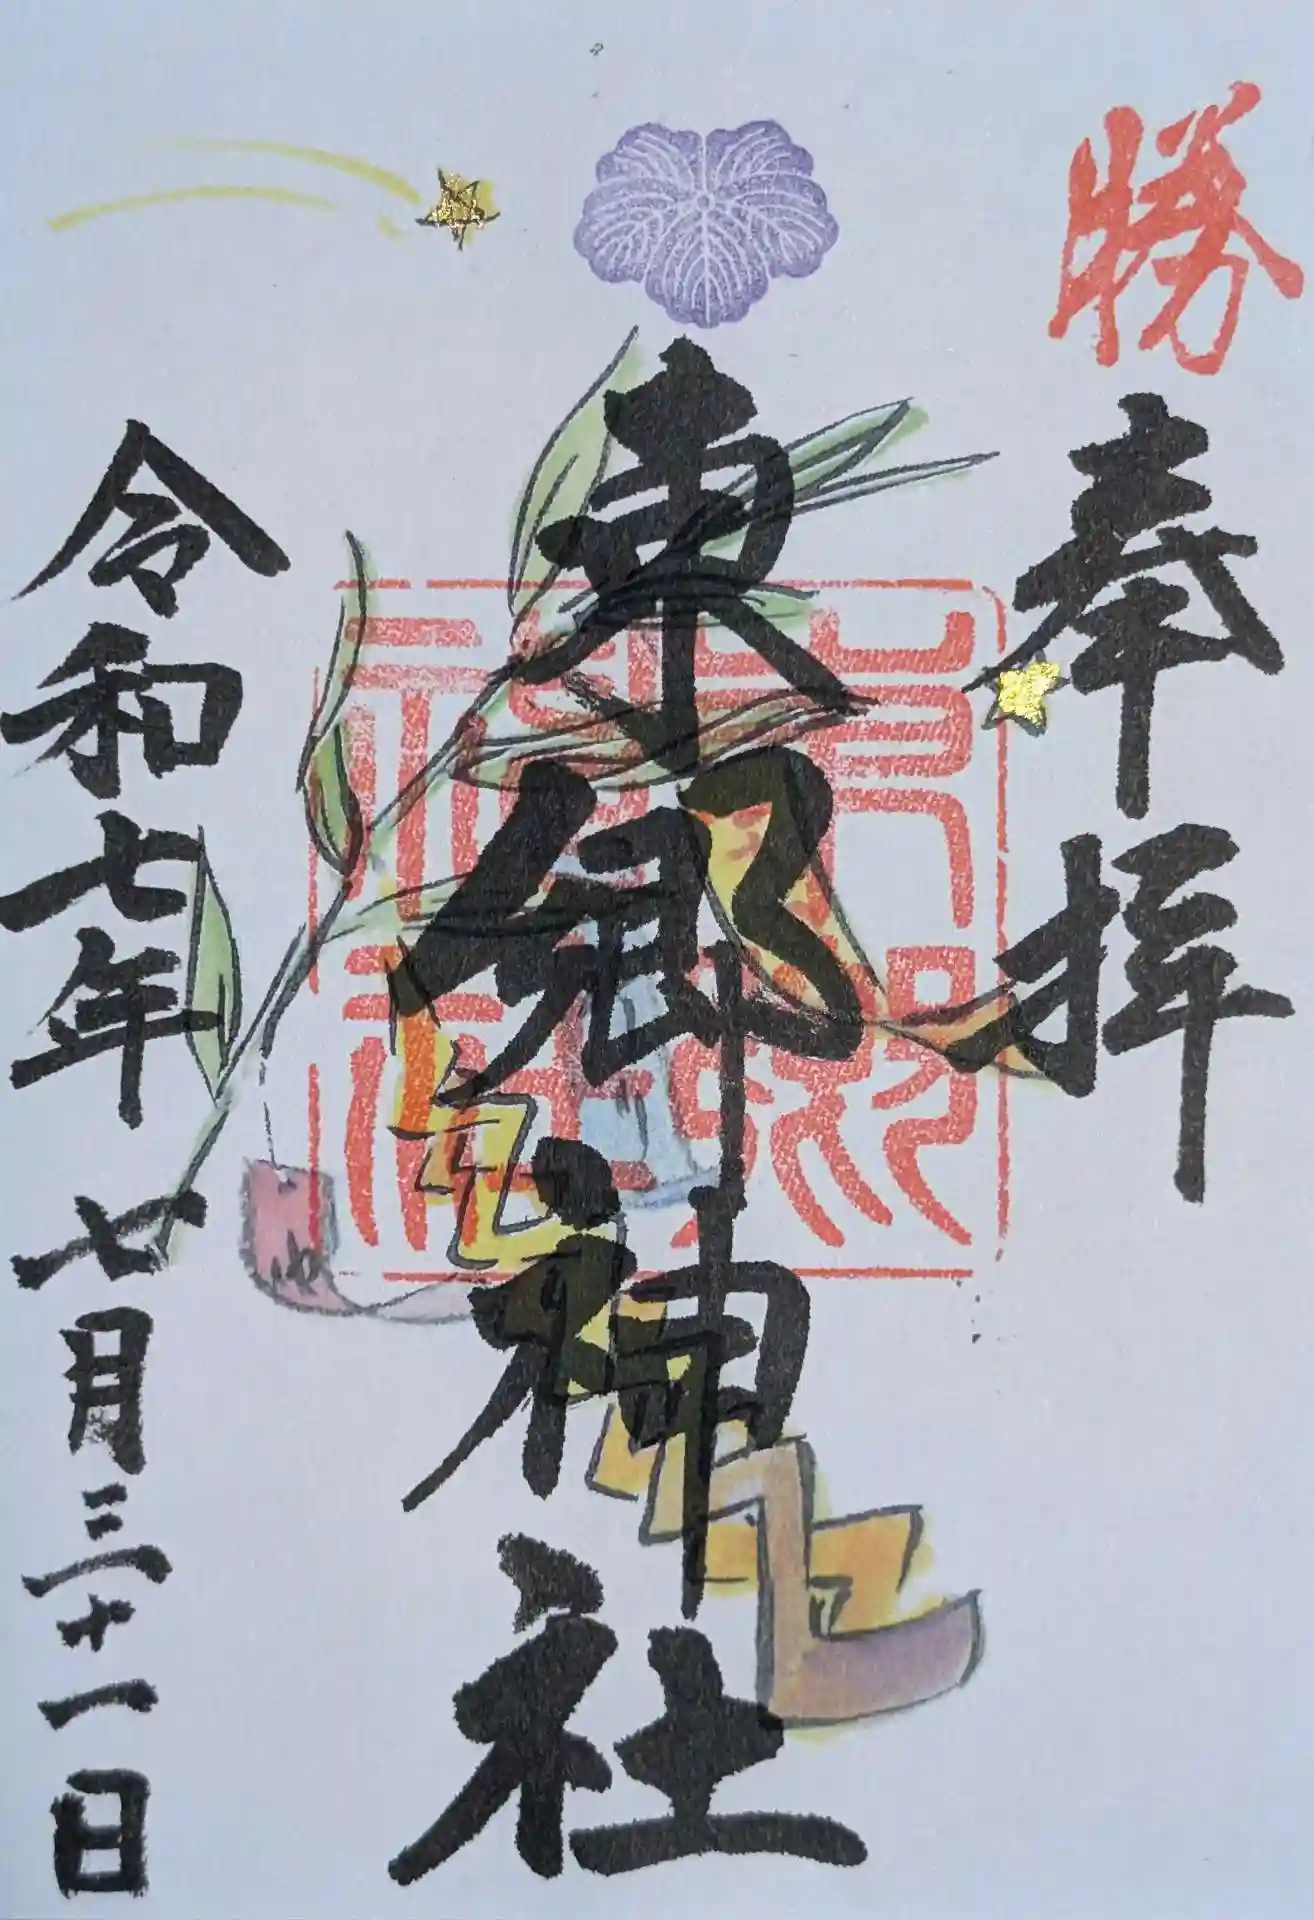 勝
奉拝
東郷神社
東郷神社
令和七年七月三十一日